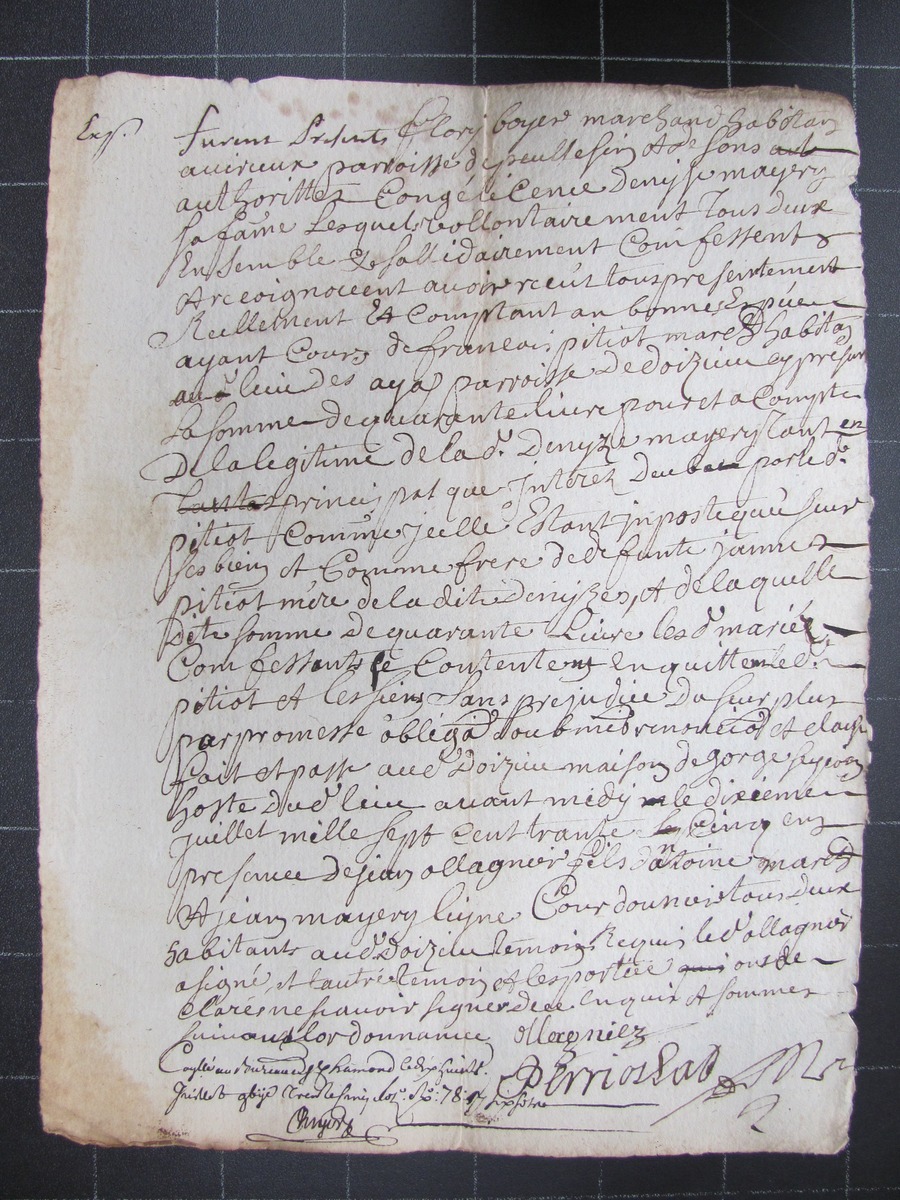 Exp.
furent Présents fflory boyer marchand habitan
a virieux parroisse de peullesin & de sons aut
authorittez Congé licence Denijze mayery
sa fame Lesquels vollontairement Tous deux
Ensemble & sollidairement Comfessent
& recoignoicent avoir receut tous presentement
Reellement Et Comptant an bonnes Espéces
ayant Cours de francois pitiot marchd habitan
au d lieu des aya parroisse De doizieu cy présent
La somme de quarante livre pour et a Compte
De la legitime de la de. Denyze mayery tant en
tantes principal que Intérez Deub par led.
pitiot Comme jcelle Estant jnposte qau sur
ses bien et Comme frere de defunte janne
pitiot mére de la dite Denijzes, & de la quelle
dite somme de quarante Livre les d mariéz
Comfessants se Contentent en quittent led.
pitiot et les siens sans prejudice du surplus
par promesse obligaon soubmiôn renonciaôn et clause
fait et passé aud Doizieu maison de gorge
hoste dud lieu avant midy le dixieme
juillet mille sept cent trante Cinq en
presence de jean ollagnier fils dantoine march
& jean mayery ligne Courdounier tous deux
habitants aud Doizieu temoins Requis led ollagnier
a signé, et lautre temoin & les portiee onde
clarés ne scavoir signer de ce enquis & sommer
suivant lordonnance Ollagniez
Perriochad
juillet